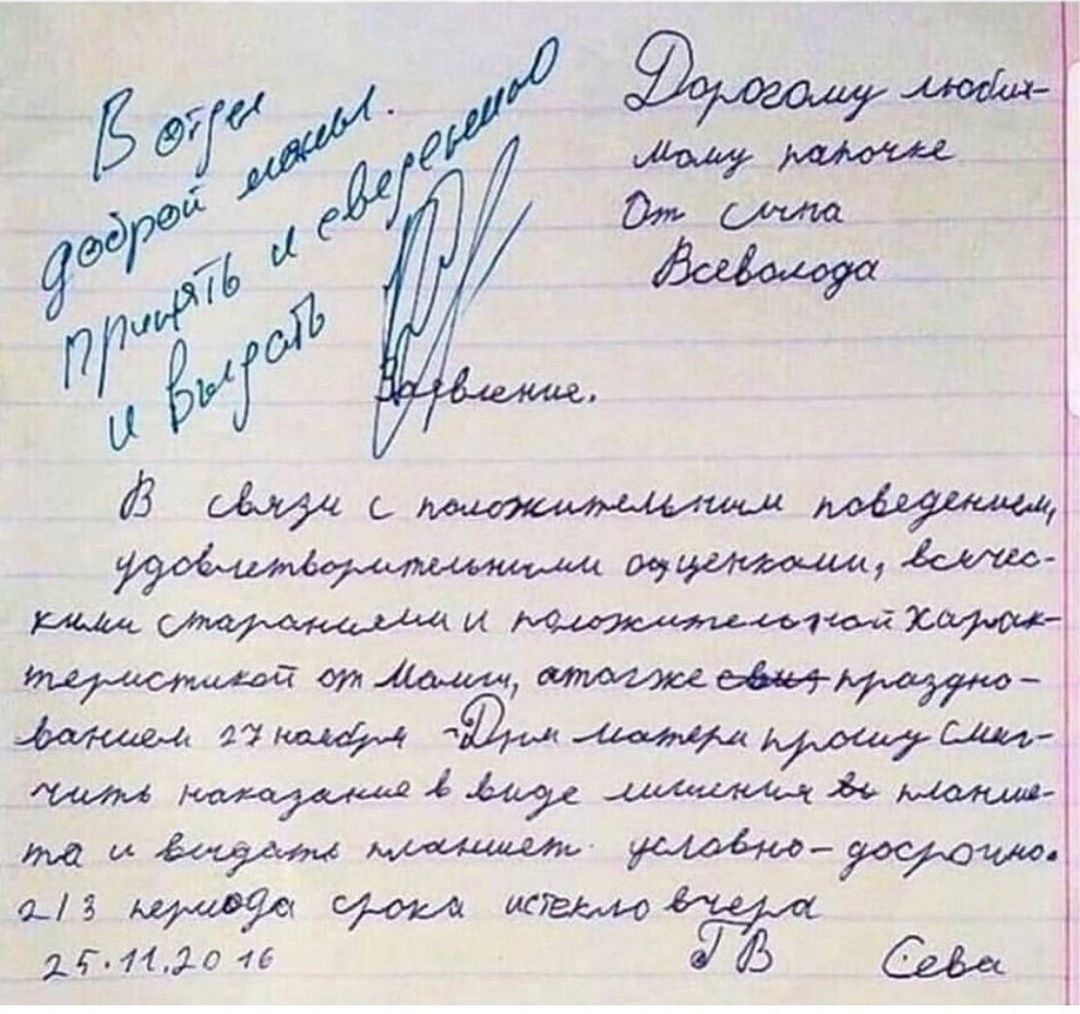 В отдел
доброй мамы.
Принять к сведению
и выдать
Дорогому любим-
мому папочке
От сына
Всеволода
Заявление.
В связи с положительным поведением,
удовлетворительными оценками, всячес-
кими стараниями и положительной харак-
теристикой от Мамы, а также праздно-
ванием 27 ноября - Дня матери прошу смяг-
чить наказание в виде лишения планше-
та и выдать планшет условно-досрочно.
2/3 периода срока истекло вчера
25.11.2016 ГВ Сева